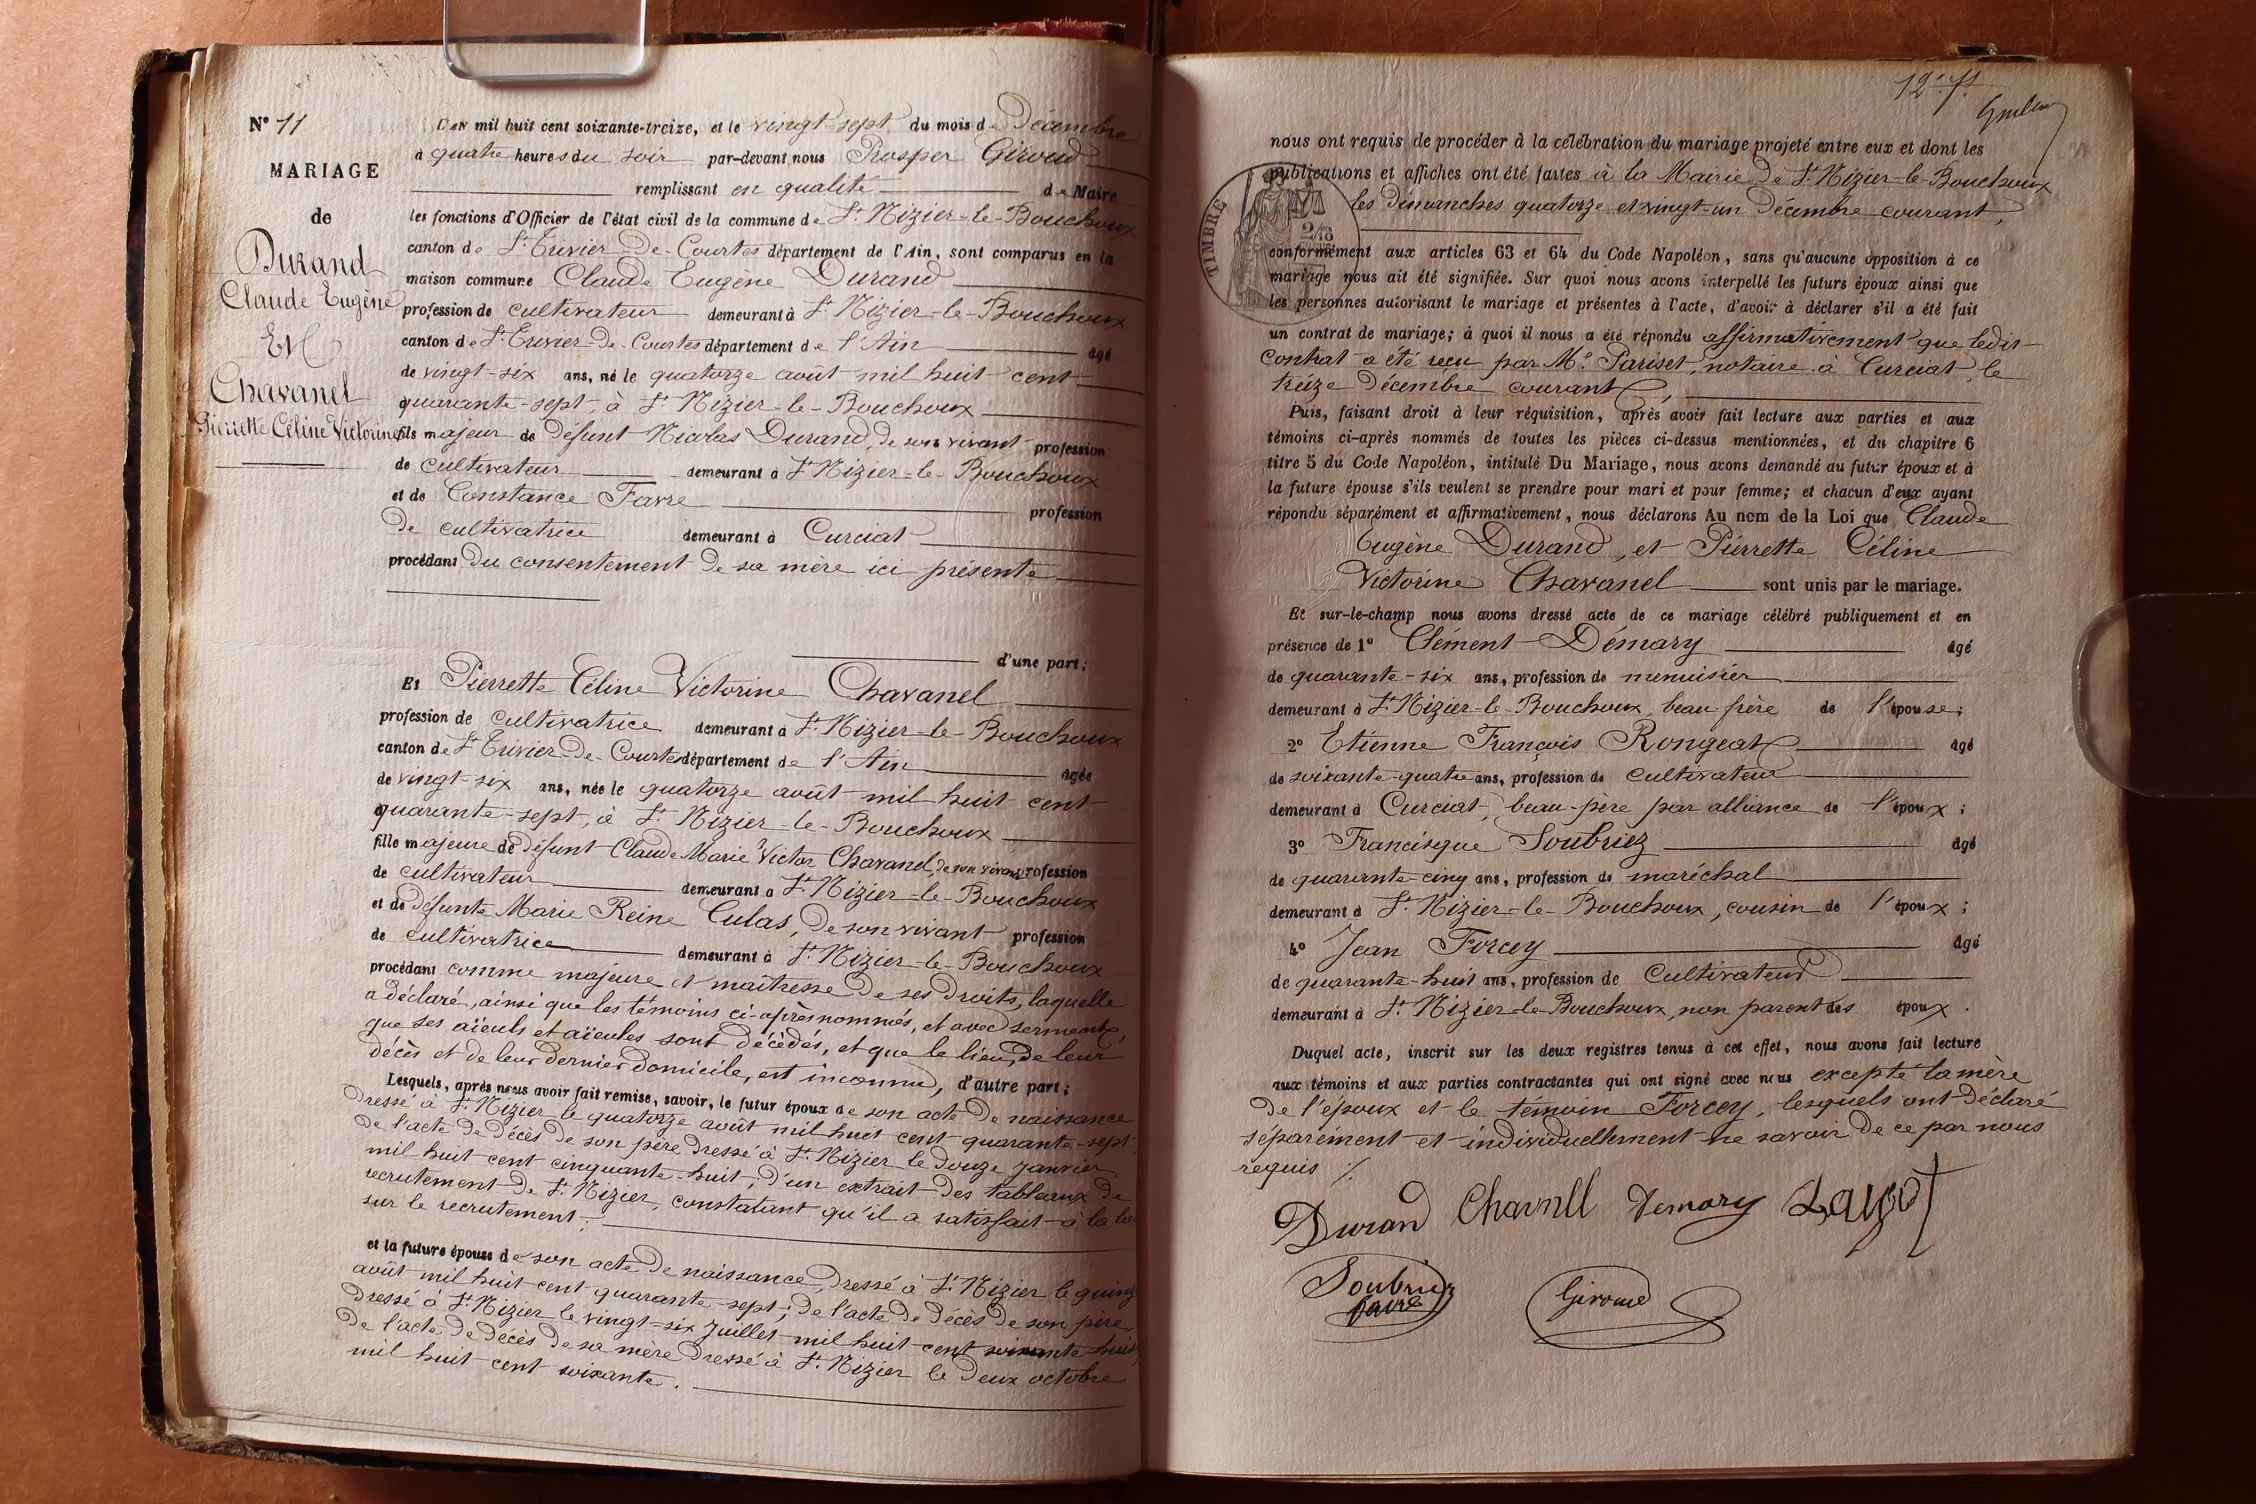 N° 11
MARIAGE
de
Durand
Claude Eugène
Et
Chavanel
Pierrette Céline Victorine
L'an mil huit cent soixante-treize, et le vingt-sept du mois de Décembre
à quatre heures du soir par-devant nous Prosper Giroud
remplissant en qualité de Maire
les fonctions d'Officier de l'état civil de la commune de St Nizier-le-Bouchoux
canton de St Trivier-de-Courtes département de l'Ain, sont comparus en la
maison commune Claude Eugène Durand
profession de cultivateur demeurant à St Nizier-le-Bouchoux
canton de St Trivier-de-Courtes département de l'Ain âgé
de vingt-six ans, né le quatorze août mil huit cent
quarante-sept, à St Nizier-le-Bouchoux
fils majeur de défunt Nicolas Durand, de son vivant profession
de cultivateur demeurant à St Nizier-le-Bouchoux
et de Constance Favre profession
de cultivatrice demeurant à Curciat
procédant du consentement de sa mère ici présente
d'une part;
Et Pierrette Céline Victorine Chavanel
profession de cultivatrice demeurant à St Nizier-le-Bouchoux
canton de St Trivier-de-Courtes département de l'Ain âgée
de vingt-six ans, née le quatorze août mil huit cent
quarante-sept, à St Nizier-le-Bouchoux
fille majeure de défunt Claude Marie Victor Chavanel, de son vivant profession
de cultivateur demeurant à St Nizier-le-Bouchoux
et de défunte Marie Reine Culas, de son vivant profession
de cultivatrice demeurant à St Nizier-le-Bouchoux
procédant comme majeure et maîtresse de ses droits, laquelle
a déclaré, ainsi que les témoins ci-après nommés, et avec serment,
que ses aïeuls et aïeules sont décédés, et que le lieu de leur
décès et de leur dernier domicile, est inconnu, d'autre part;
Lesquels, après nous avoir fait remise, savoir, le futur époux de son acte de naissance
dressé à St Nizier le quatorze août mil huit cent quarante-sept,
de l'acte de décès de son père dressé à St Nizier le douze janvier
mil huit cent cinquante-huit; d'un extrait des tableaux de
recrutement de St Nizier, constatant qu'il a satisfait à la loi
sur le recrutement;
et la future épouse de son acte de naissance dressé à St Nizier le quinze
août mil huit cent quarante-sept; de l'acte de décès de son père,
dressé à St Nizier le vingt-six Juillet mil huit cent soixante huit,
de l'acte de décès de sa mère dressé à St Nizier le deux octobre
mil huit cent soixante.
nous ont requis de procéder à la célébration du mariage projeté entre eux et dont les
publications et affiches ont été faites à la Mairie de St Nizier-le-Bouchoux
les dimanches quatorze et vingt-un Décembre courant,
TIMBRE
conformément aux articles 63 et 64 du Code Napoléon, sans qu'aucune opposition à ce
mariage nous ait été signifiée. Sur quoi nous avons interpellé les futurs époux ainsi que
les personnes autorisant le mariage et présentes à l'acte, d'avoir à déclarer s'il a été fait
un contrat de mariage; à quoi il nous a été répondu affirmativement que ledit
contrat a été reçu par Me Pariset, notaire à Curciat, le
treize décembre courant,
Puis, faisant droit à leur réquisition, après avoir fait lecture aux parties et aux
témoins ci-après nommés de toutes les pièces ci-dessus mentionnées, et du chapitre 6
titre 5 du Code Napoléon, intitulé Du Mariage, nous avons demandé au futur époux et à
la future épouse s'ils veulent se prendre pour mari et pour femme; et chacun d'eux ayant
répondu séparément et affirmativement, nous déclarons Au nom de la Loi que Claude
Eugène Durand, et Pierrette Céline
Victorine Chavanel sont unis par le mariage.
Et sur-le-champ nous avons dressé acte de ce mariage célébré publiquement et en
présence de 1° Clément Démary âgé
de quarante-six ans, profession de menuisier
demeurant à St Nizier-le-Bouchoux, beau frère de l'épouse;
2° Etienne François Rongeat âgé
de soixante-quatre ans, profession de cultivateur
demeurant à Curciat, beau-père par alliance de l'époux;
3° Francisque Soubriez âgé
de quarante-cinq ans, profession de maréchal
demeurant à St Nizier-le-Bouchoux, cousin de l'époux;
4° Jean Forcey âgé
de quarante-huit ans, profession de cultivateur
demeurant à St Nizier-le-Bouchoux, non parent des époux.
Duquel acte, inscrit sur les deux registres tenus à cet effet, nous avons fait lecture
aux témoins et aux parties contractantes qui ont signé avec nous excepté la mère
de l'époux et le témoin Forcey, lesquels ont déclaré
séparément et individuellement ne savoir de ce par nous
requis
Durand Demary
Soubriez
Giroud